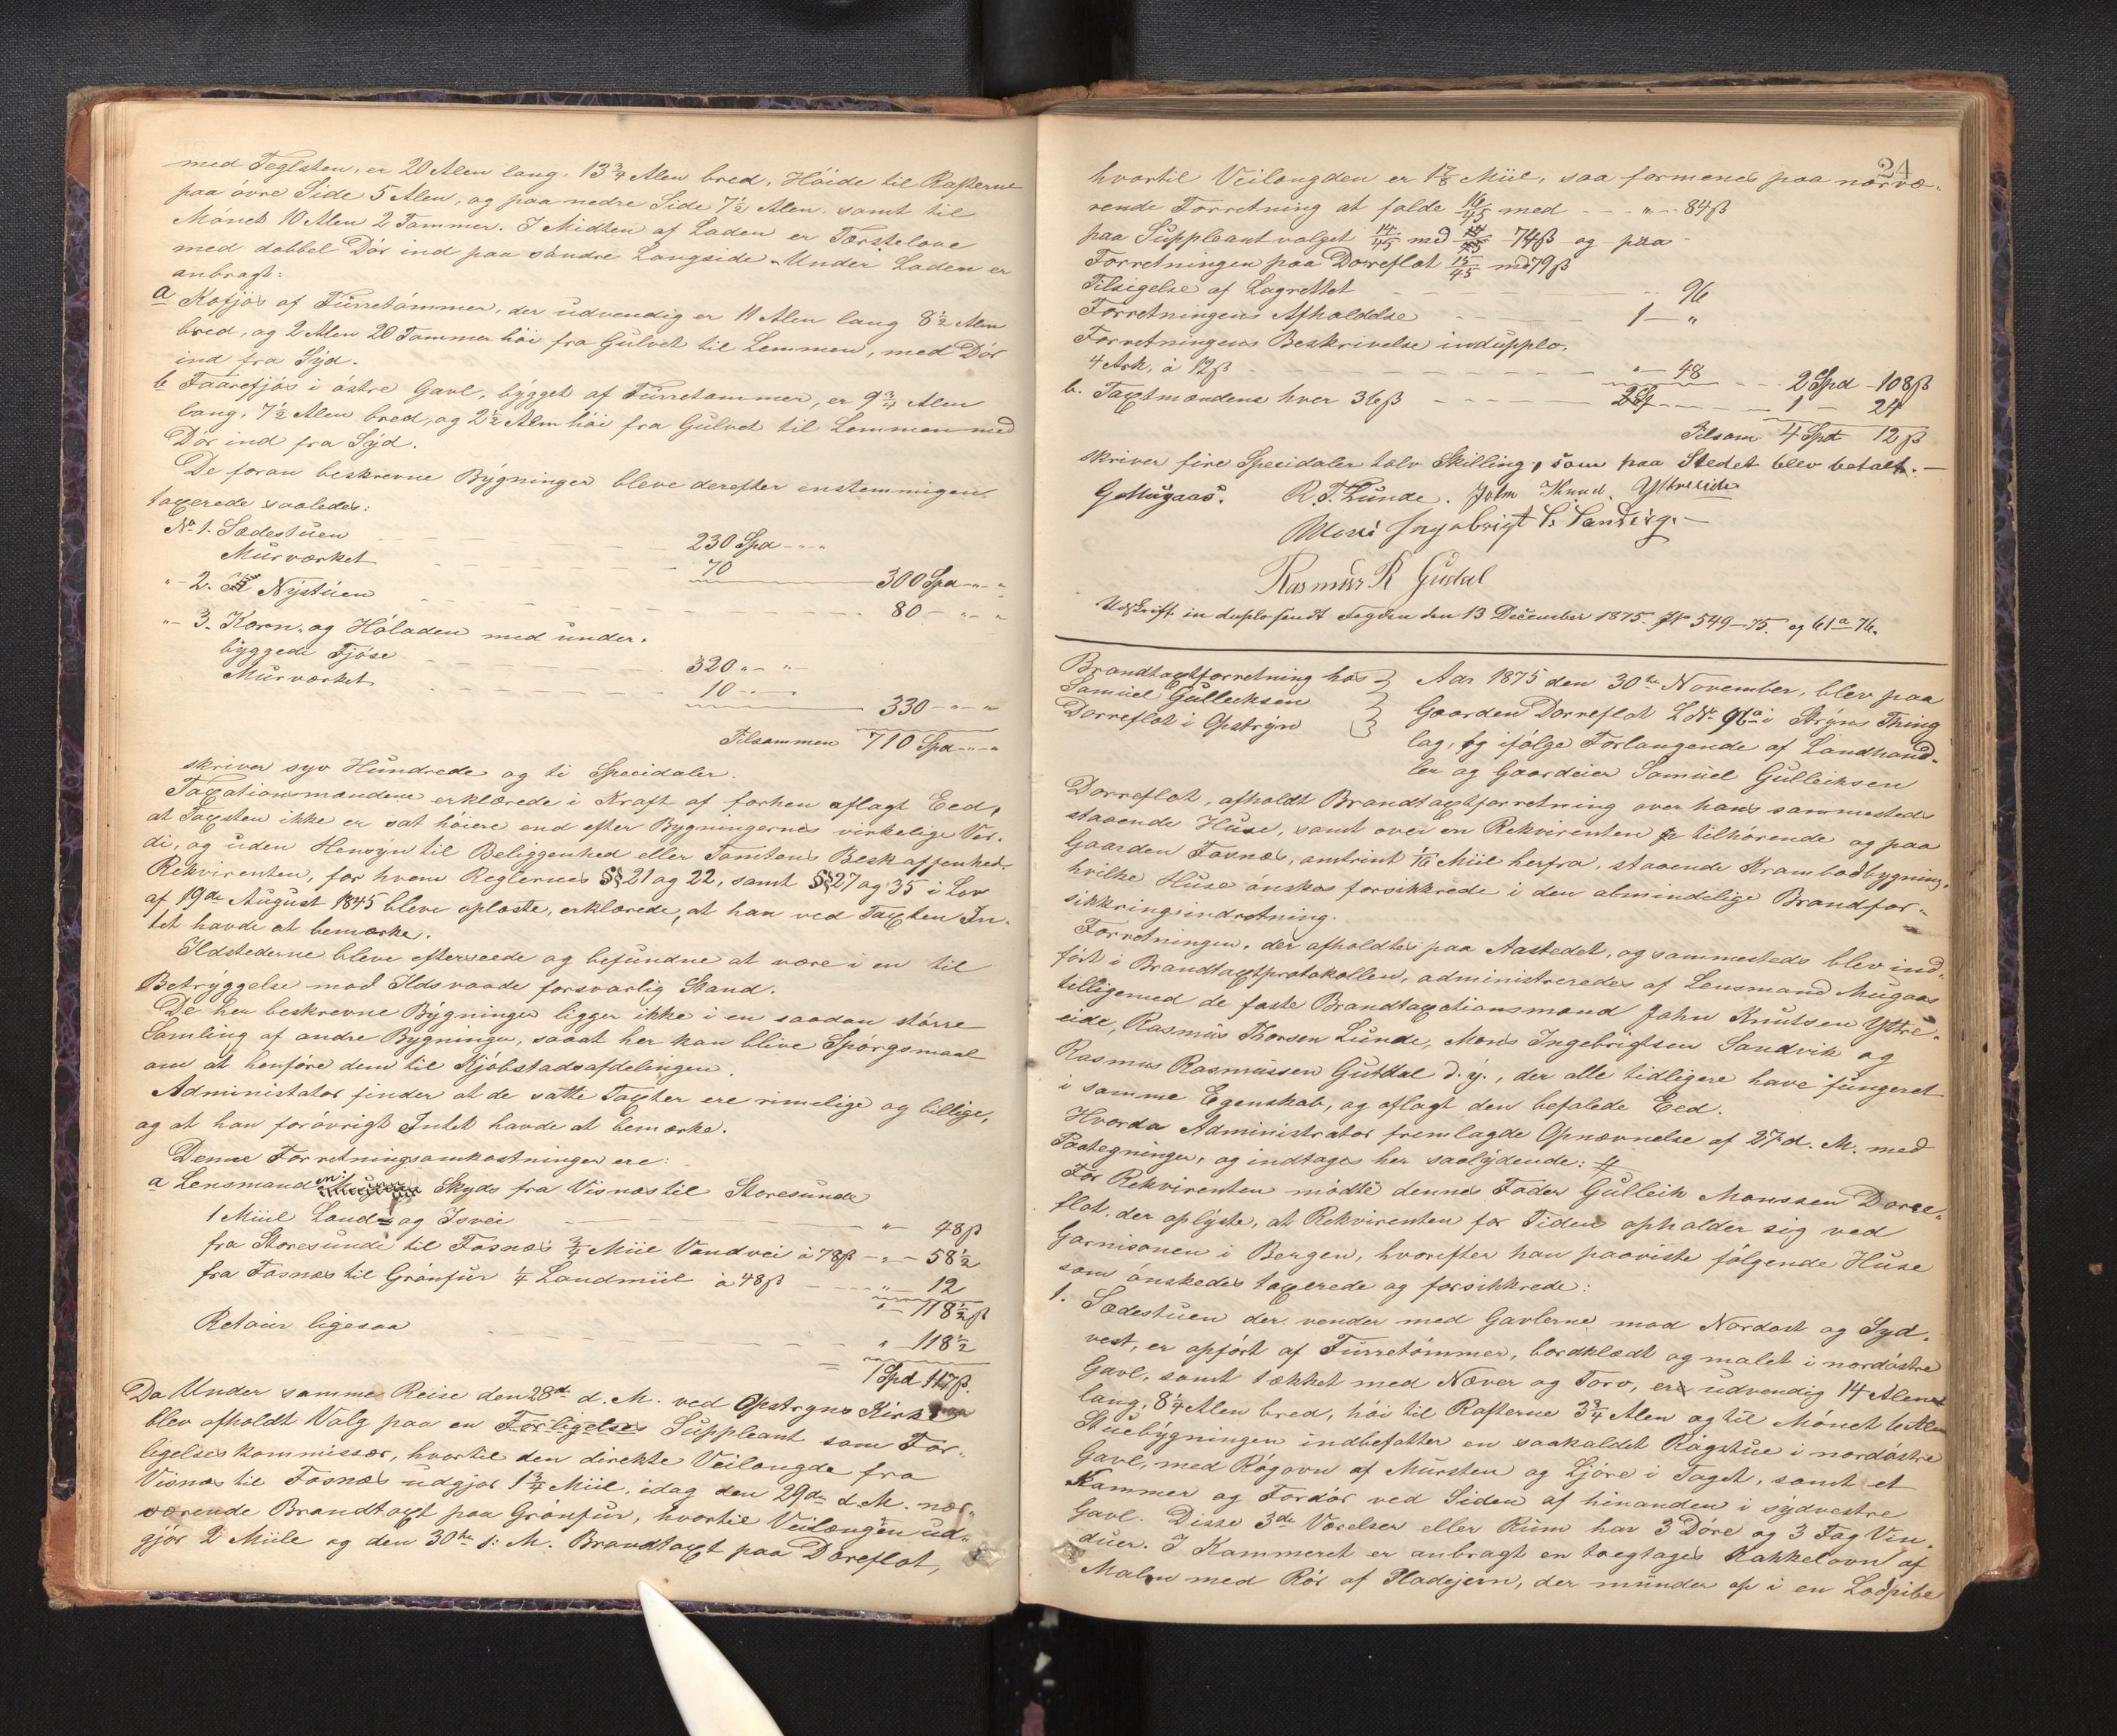 med Teglsten, er 20 Alen lang, 13 3/4 Alen bred, Höide til Rafterne
paa övre Side 5 Alen, og paa nedre Side 7 1/2 Alen samt til
Mönet 10 Alen 2 Tommer. I Midten af Laden er Tærskelove
med dobbel Dör ind paa söndre Langside. Under Laden er
anbragt:
a Kofjös af Fürretömmer, der udvendig er 11 Alen lang 8 1/2 Alen
bred, og 2 Alen 20 Tommer höi fra Gülvet til Lemmen, med Dör
ind fra Syd.
b Faarefjös i östre Gavl, bygget af Fürretømmer, er 9 3/4 Alen
lang, 7 1/2 Alen bred, og 2 1/2 Alen höi fra Gülvet til Lemmen med
Dör ind fra Syd.
De foran beskrevne Bygninger bleve derefter enstemmigen
taxerede saaledes:
No 1. Sædestüen 230 Spd - "
Mürværket 70 300 Spd - " "
" - 2. Nystüen 80 - " - "
" - 3. Korn- og Höladen med under-
byggede Fjöse 320 " - "
Mürværket 10 - " 330 - " - "
Tilsammen 710 Spd - " - "
skriver syv Hündrede og ti Speciedaler.
Taxationsmændene erklærede i Kraft af forhen aflagt Eed,
at Taxten ikke er sat höiere end efter Bygningernes virkelige Vær-
di, og uden Hensyn til Beliggenhed eller Tomtens Beskaffenhed.
Rekvirenten, for hvem Reglernes §§ 21 og 22, samt §§ 27 og 35 i Lov
af 19de Aügust 1845 bleve oplæste, erklærede, at han ved Taxten In-
tet havde at bemærke.
Ildstederne bleve efterseede og befundne at være i en til
Betryggelse mod Ildsvaade forsvarlig Stand.
De her beskrevne Bygninger ligger ikke i en saadan större
Samling af andre Bygninger, saaat her kan blive Spörgsmaal
om at henföre dem til Kjöbstadsafdelingen.
Administrator finder at de satte Taxter ere rimelige og billige,
og at han forövrigt Intet havde at bemærke.
Denne Forretningsomkostninger ere:
a Lensmanden Skyds fra Visnæs til Storesunde
1 Miil Land- og Isvei " - 48 ß
fra Storesunde til Fosnæs 3/4 Miil Vandvei à 78 ß - " - 58 1/2
fra Fosnæs til Grönfür 1/4 Landmiil à 48 ß - " - 12
" - 118 1/2 ß
Retour ligesaa " 118 1/2
= 1 Spd 117 ß.
Da Under samme Reise den 28de d. M. ved Opstryns Kirke
blev afholdt Valg paa en Forligelses Süppleant som For-
ligelseskommissær, hvortil den direkte Veilængde fra
Visnæs til Fosnæs udgjör 1 3/4 Miil, idag den 29de d. M. nær-
værende Brandtaxt paa Grönfür, hvortil Veilængden ud-
gjör 2 Miile og den 30te s: M. Brandtaxt paa Doreflot,
24
hvortil Veilængden er 1 7/8 Miil, saa formenes paa nærvæ-
rende Forretning at falde 16/45 med - - " - 84 ß
paa Suppleantvalget 14/45 med 74 ß og paa
Forretningen paa Dorreflot 15/45 med 79 ß
Tilsigelse af Lagrettet 96
Forretningens Afholdelse 1 - "
Forretningens Beskrivelse in dupplo,
4 Ark, à 12 ß " - 48 2 Spd - 108 ß
b. Taxtmændene hver 36 ß 1 - 24
Tilsam. 4 Spd 12 ß
skriver fire Speciedaler tolv Skilling, som paa Stedet blev betalt. -
G. Mugaas. R. T. Lunde. John Knud. Ystreeide
Mons Ingebrigt S. Sandvig. -
Rasmus R Gudal
Udskrift in duplo sendt Fogden den 13 December 1875. J No 549-75. og 61a 76.
Brandtaxtforretning hos
Samüel Gülleiksen
Dorreflot i Opstryn
Aar 1875 den 30te November, blev paa
Gaarden Dorreflot L No 96a i Stryns Thing
lag, ifølge Forlangende af Landhand-
ler og Gaardeier Samüel Gülleiksen
Dorreflot, afholdt Brandtaxtforretning over hans sammesteds
staaende Huse, samt over en Rekvirenten tilhörende og paa
Gaarden Fosnæs, omtrint 1/16 Miil herfra, staaende Krambodbygning,
hvilke Huse önskes forsikkrede i den almindelige Brandfor-
sikkringsindretning.
Forretningen, der afholdtes paa Aastedet, og sammesteds blev ind-
fört i Brandtaxtprotokollen, administreredes af Lensmand Mugaas
tilligemed de faste Brandtaxationsmænd John Knutsen Ystre-
eide, Rasmus Thorsen Lünde, Mons Ingebrigtsen Sandvik og
Rasmus Rasmüssen Gutdal d. y., der alle tidligere have fungeret
i samme Egenskab, og aflagt den befalede Eed.
Hvorda Administrator fremlagde Opnævnelse af 27 d. M. med
Paategninger, og indtages her saalydende:
For Rekvirenten mödte dennes Fader Gülleik Monssen Dorre-
flot, der oplyste, at Rekvirenten for Tiden opholder sig ved
Garnisonen i Bergen, hvorefter han paaviste fölgende Huse
som önskedes taxerede og forsikkrede:
1. Sædestüen der vender med Gavlerne mod Nordost og Syd-
vest, er opfört af Fürretömmer, bordklædt og malet i nordöstre
Gavl, samt tækket med Næver og Torv, er udvendig 14 Alen
lang, 8 1/4 Alen bred, höi til Rafterne 3 3/4 Alen og til Mönet 6 Alen
Stüebygningen indbefatter en saakaldet Rögstüe i nordöstre
Gavl, med Rögovn af Mürsten og Ljöre i Taget, samt et
Kammer og Fordör ved Siden af hinanden i sydvestre
Gavl. Disse 3de Værelser eller Rüm har 3 Döre og 3 Fag Vin-
duer. I Kammeret er anbragt en toegtages Kakkelovn af
Malm med Rör af Pladejern, der münder op i en Lodpibe